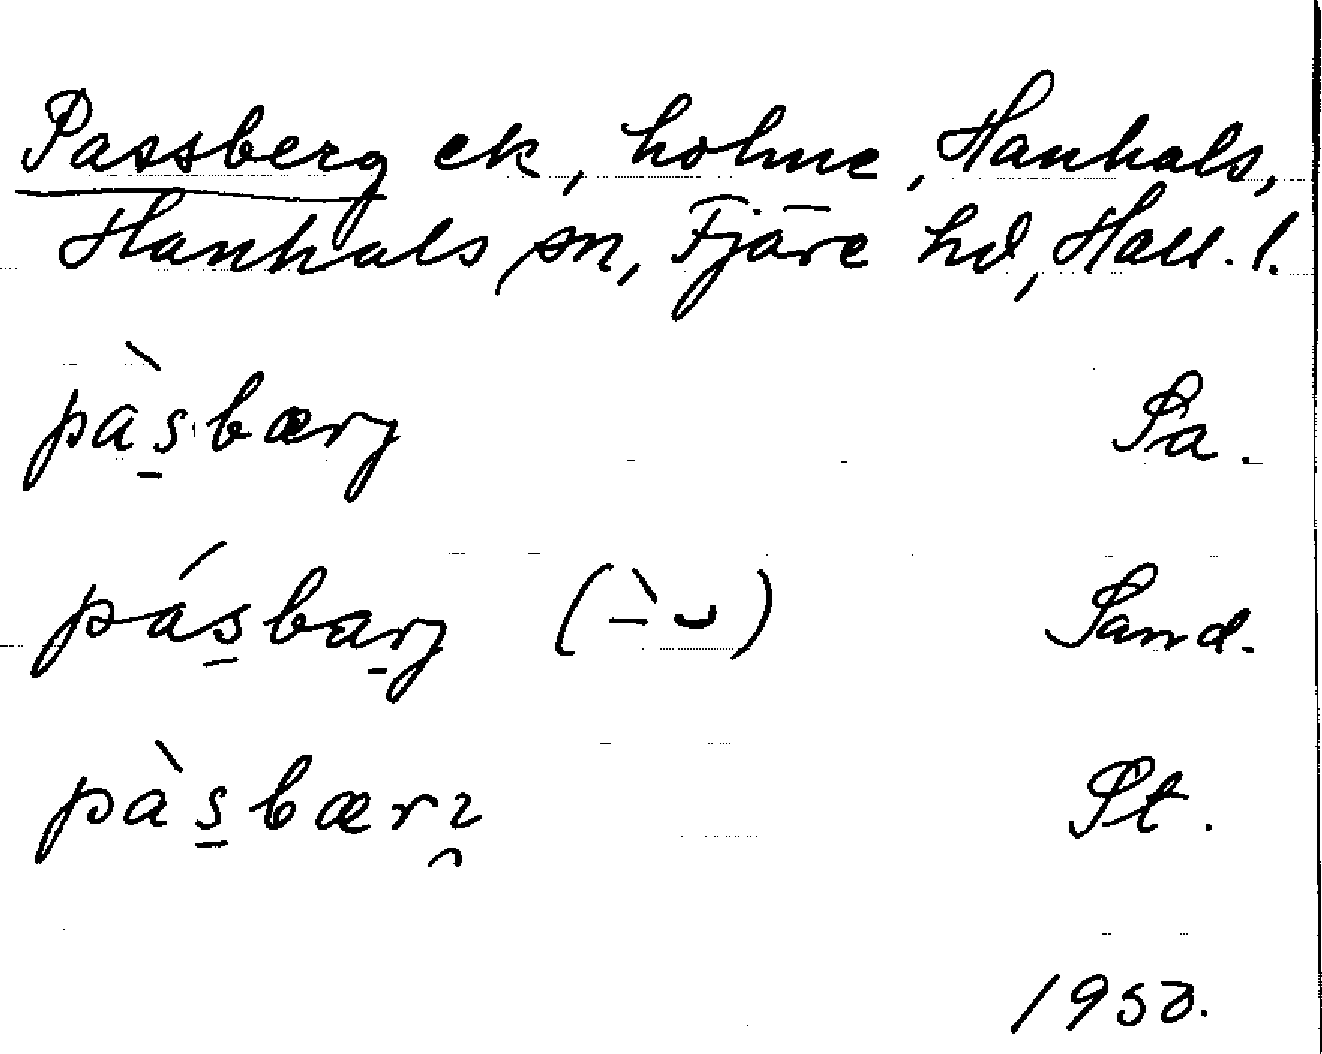 Passberg ek, holme, Hanhals,
Hanhals sn, Fjäre hd, Hall. l.
pàs̠bærj Pa.
pás̠bar̠j (–̀ ⌣) Sand.
pàs̠bærı̯ St.
1950.